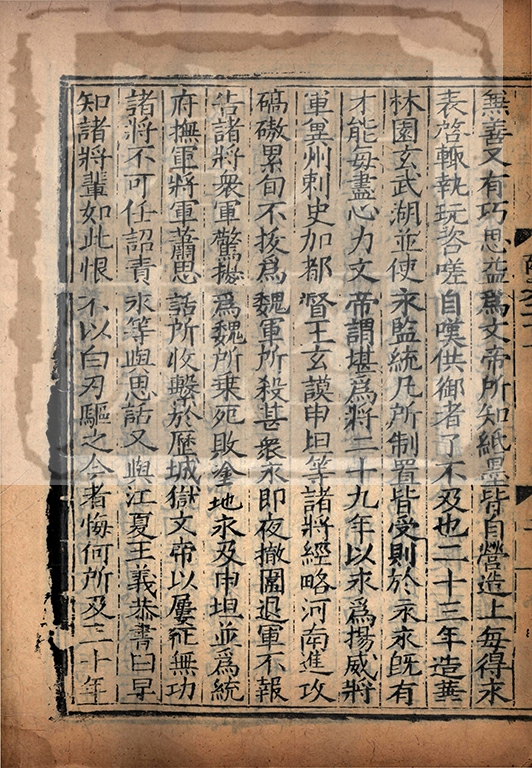 無善又有巧思益爲文帝所知紙墨皆自營造上每得永
表啓輒執玩咨嗟自嘆供御者了不及也二十三年造華
林園玄武湖並使永監統凡所制置皆受則於永永旣有
才能每盡心力文帝謂堪爲將二十九年以永爲揚威將
軍兾州刺史加都督王玄謨申坦等諸將經略河南進攻
碻磝累旬不拔爲魏軍所殺甚衆永即夜撤圍退軍不報
告諸將衆軍驚擾爲魏所乗死敗塗地永及申坦並爲統
府撫軍將軍蕭思話所收繫於歷城獄文帝以屢征無功
諸將不可任詔責永等與思話又與江夏王義恭書曰早
知諸將軰如此恨不以白刃驅之今者悔何所及三十年